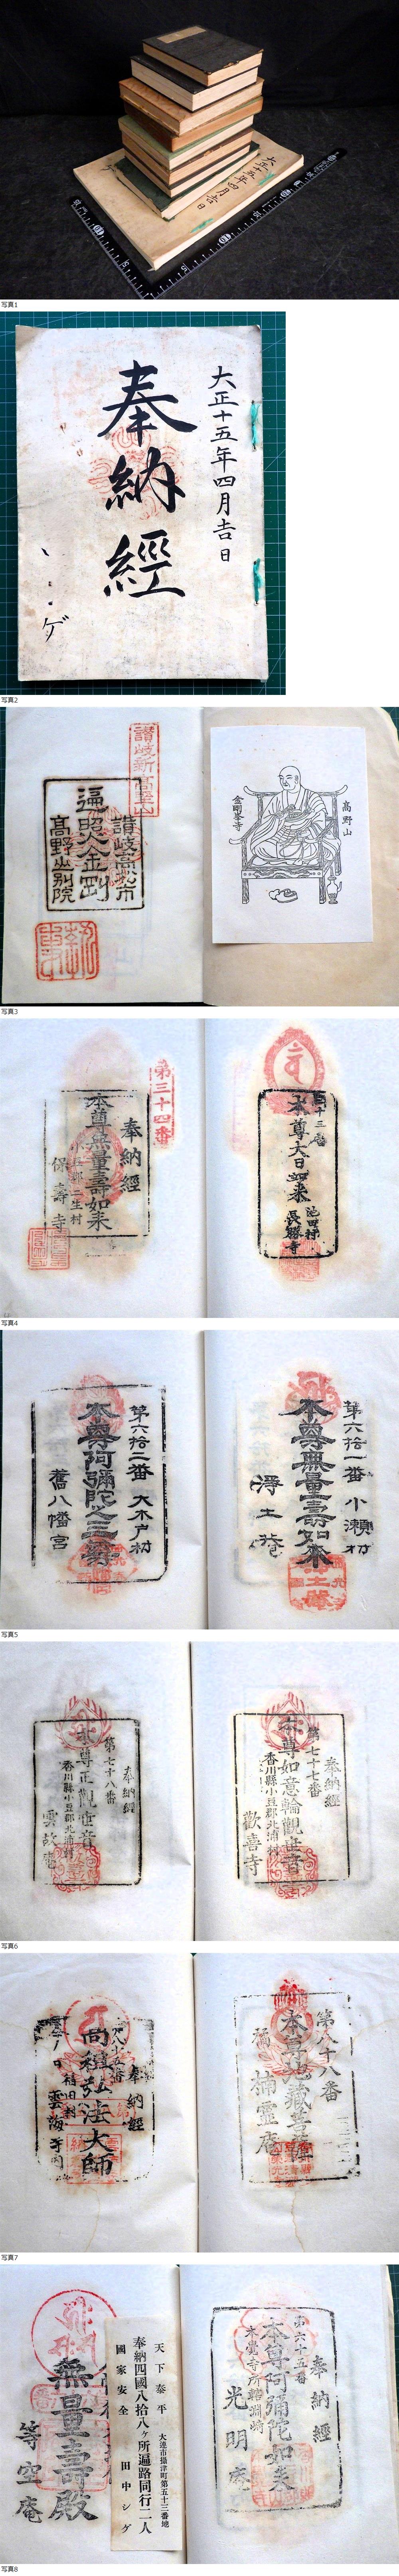 大正十五年四月吉日
写真1
大正十五年四月吉日
奉納經
ゲ
写真2
高野山
金剛峯寺
讃岐高松市
遍照金剛
高野山別院
写真3
十三番
本尊大日如来
池田村
長勝寺
第三十四番
奉納經
本尊無量壽如来
保壽寺
写真4
第六拾一番 小瀬村
本尊無量壽如来
浄土菴
第六拾二番 大木戸村
本尊阿彌陀三尊
舊八幡宮
写真5
奉納經
第七十七番
本尊如意輪觀世音
香川縣小豆郡北浦村
歡喜寺
奉納經
第七十八番
本尊正觀世音
香川縣小豆郡北浦村
雲故菴
写真6
第八十八番
本尊地藏菩薩
楠霊庵
奉納經
第八十五番
弘法大師
福田村
雲海寺
写真7
奉納經
第六十五番
本尊阿彌陀如来
光明庵
天下泰平
大連市攝津町第五十三番地
奉納四國八拾八ヶ所遍路同行二人
國家安全
田中シゲ
無量壽殿
等空庵
写真8